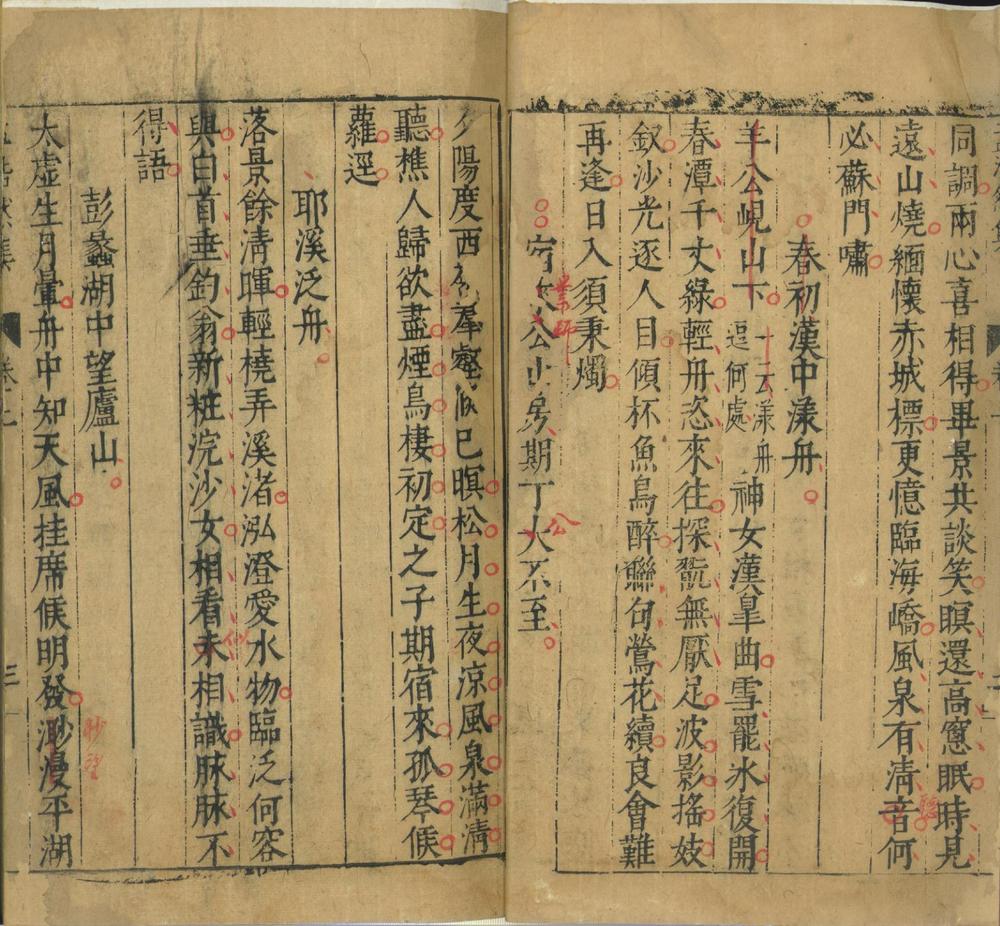 同調兩心喜相得畢景共談笑暝還高窻眠時見
遠山燒緬懷赤城標更憶臨海嶠風泉有清音何
必蘇門嘯
春初漢中漾舟
羊公峴山下一云漾舟逗何處神女漢皐曲雪罷氷復開
春潭千丈綠輕舟恣來往探翫無厭足波影搖妓
釵沙光逐人目傾杯魚鳥醉聯句鶯花續良會難
再逢日入須秉燭
公山房期丁大不至
業師
公
夕陽度西羣壑已暝松月生夜凉風泉滿清
聽樵人歸欲盡煙鳥棲初定之子期宿來孤琴候
蘿逕
耶溪泛舟
落景餘清暉輕橈弄溪渚泓澄愛水物臨泛何容
與白首垂釣翁新粧浣沙女相看未相識脉脉不
得語
彭蠡湖中望廬山
太虛生月暈舟中知天風挂席候明發渺漫平湖